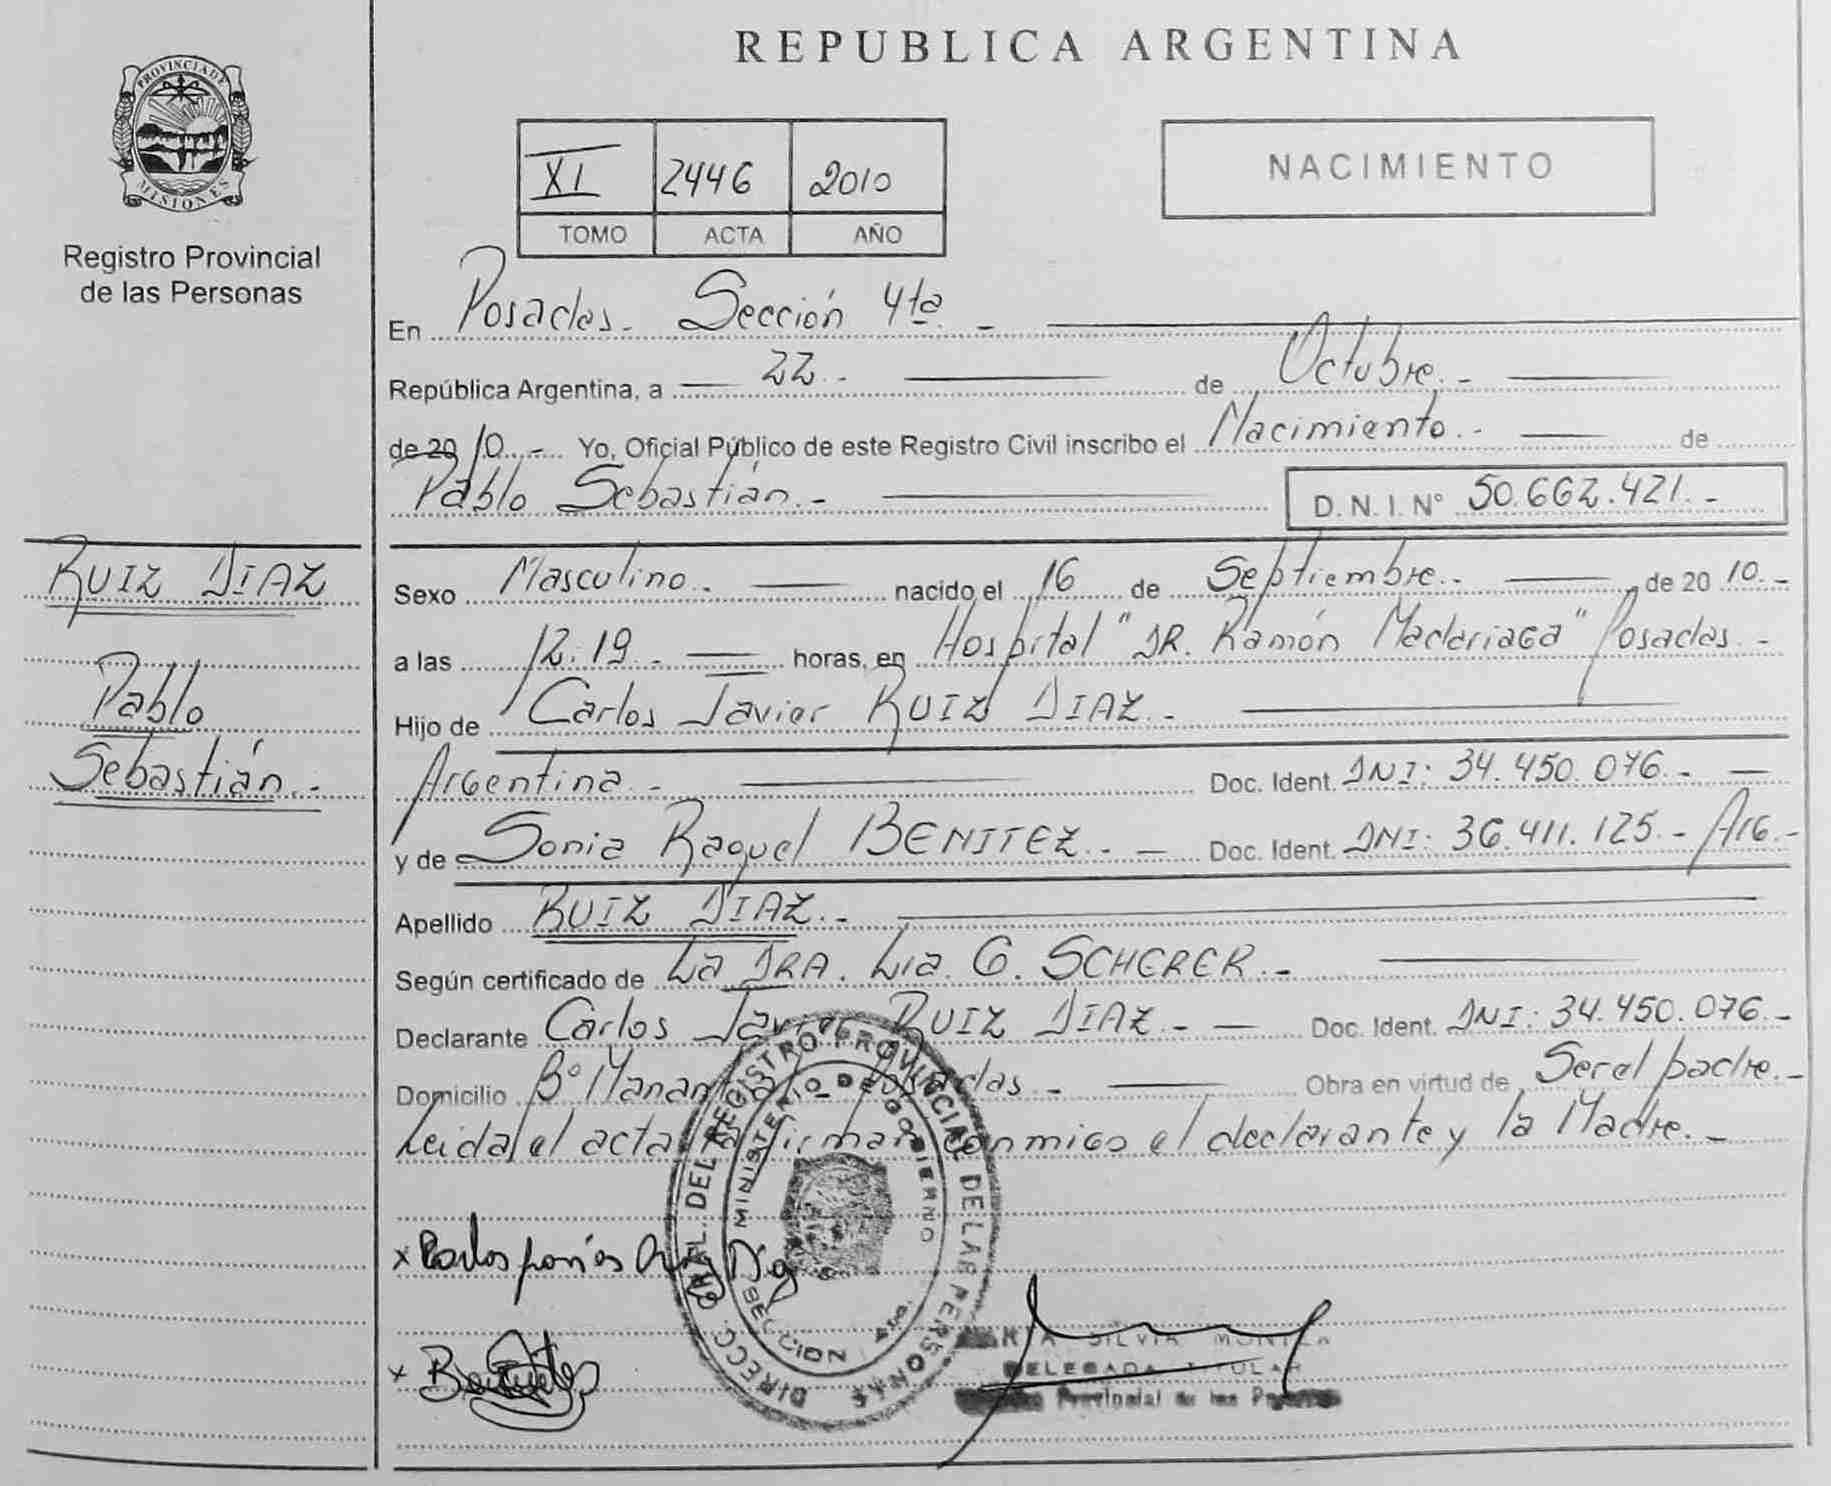 REPUBLICA ARGENTINA
PROVINCIA DE
MISIONES
Registro Provincial
de las Personas
XI 2446 2010
TOMO ACTA AÑO
NACIMIENTO
En Posadas - Sección 4ta. -
República Argentina, a 22.- de Octubre.-
de 2010.- Yo, Oficial Público de este Registro Civil inscribo el Nacimiento.- de
Pablo Sebastián.- D. N. I. Nº 50.662.421.-
RUIZ DIAZ
Pablo
Sebastián.-
Sexo Masculino.- nacido el 16 de Septiembre.- de 2010.-
a las 12.19.- horas, en Hospital "DR. Ramón Madariaga" Posadas.-
Hijo de Carlos Javier RUIZ DIAZ.-
Argentina.- Doc. Ident. DNI: 34.450.076.-
y de Sonia Raquel BENITEZ.- Doc. Ident. DNI: 36.411.125.- Arg.-
Apellido RUIZ DIAZ.-
Según certificado de La DRA. Lia G. SCHERER.-
Declarante Carlos Javier RUIZ DIAZ.- Doc. Ident. DNI: 34.450.076.-
Domicilio Bº Posadas.- Obra en virtud de Ser el padre.-
Leida el acta la firman conmigo el declarante y la Madre.-
DIRECC. GRAL. DEL REGISTRO PROVINCIAL DE LAS PERSONAS
MINISTERIO DE GOBIERNO
SECCION
x Carlos Diaz
x Benitez
SILVIA
DELEGADA TITULAR
Provincial de las